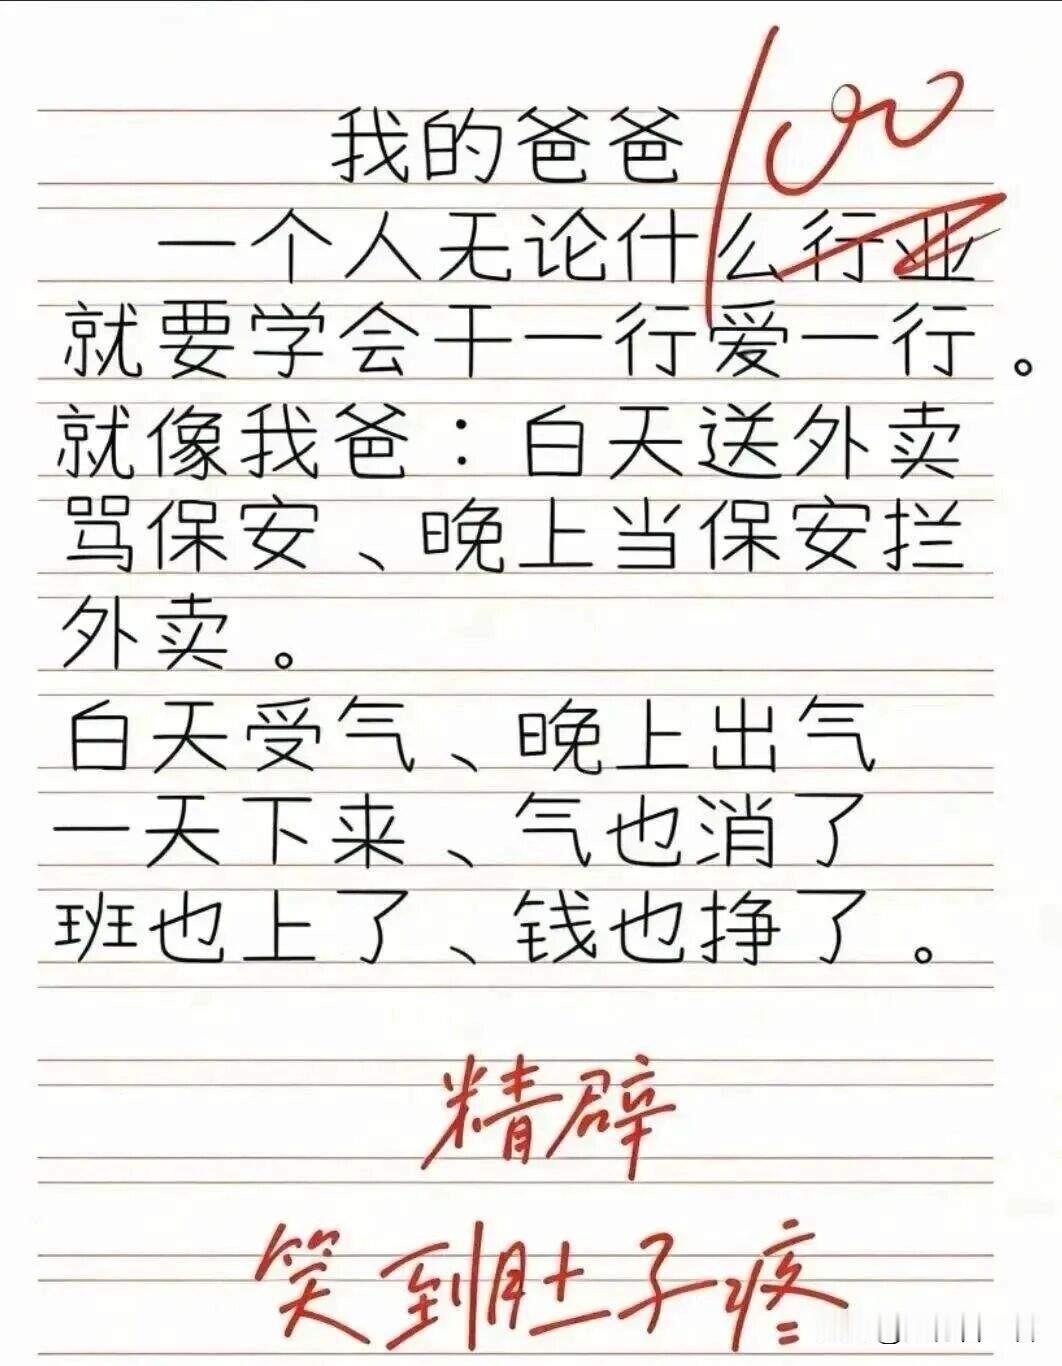 我的爸爸
100
一个人无论什么行业
就要学会干一行爱一行。
就像我爸：白天送外卖
骂保安、晚上当保安拦
外卖。
白天受气、晚上出气
一天下来、气也消了
班也上了、钱也挣了。
精辟
笑到肚子疼